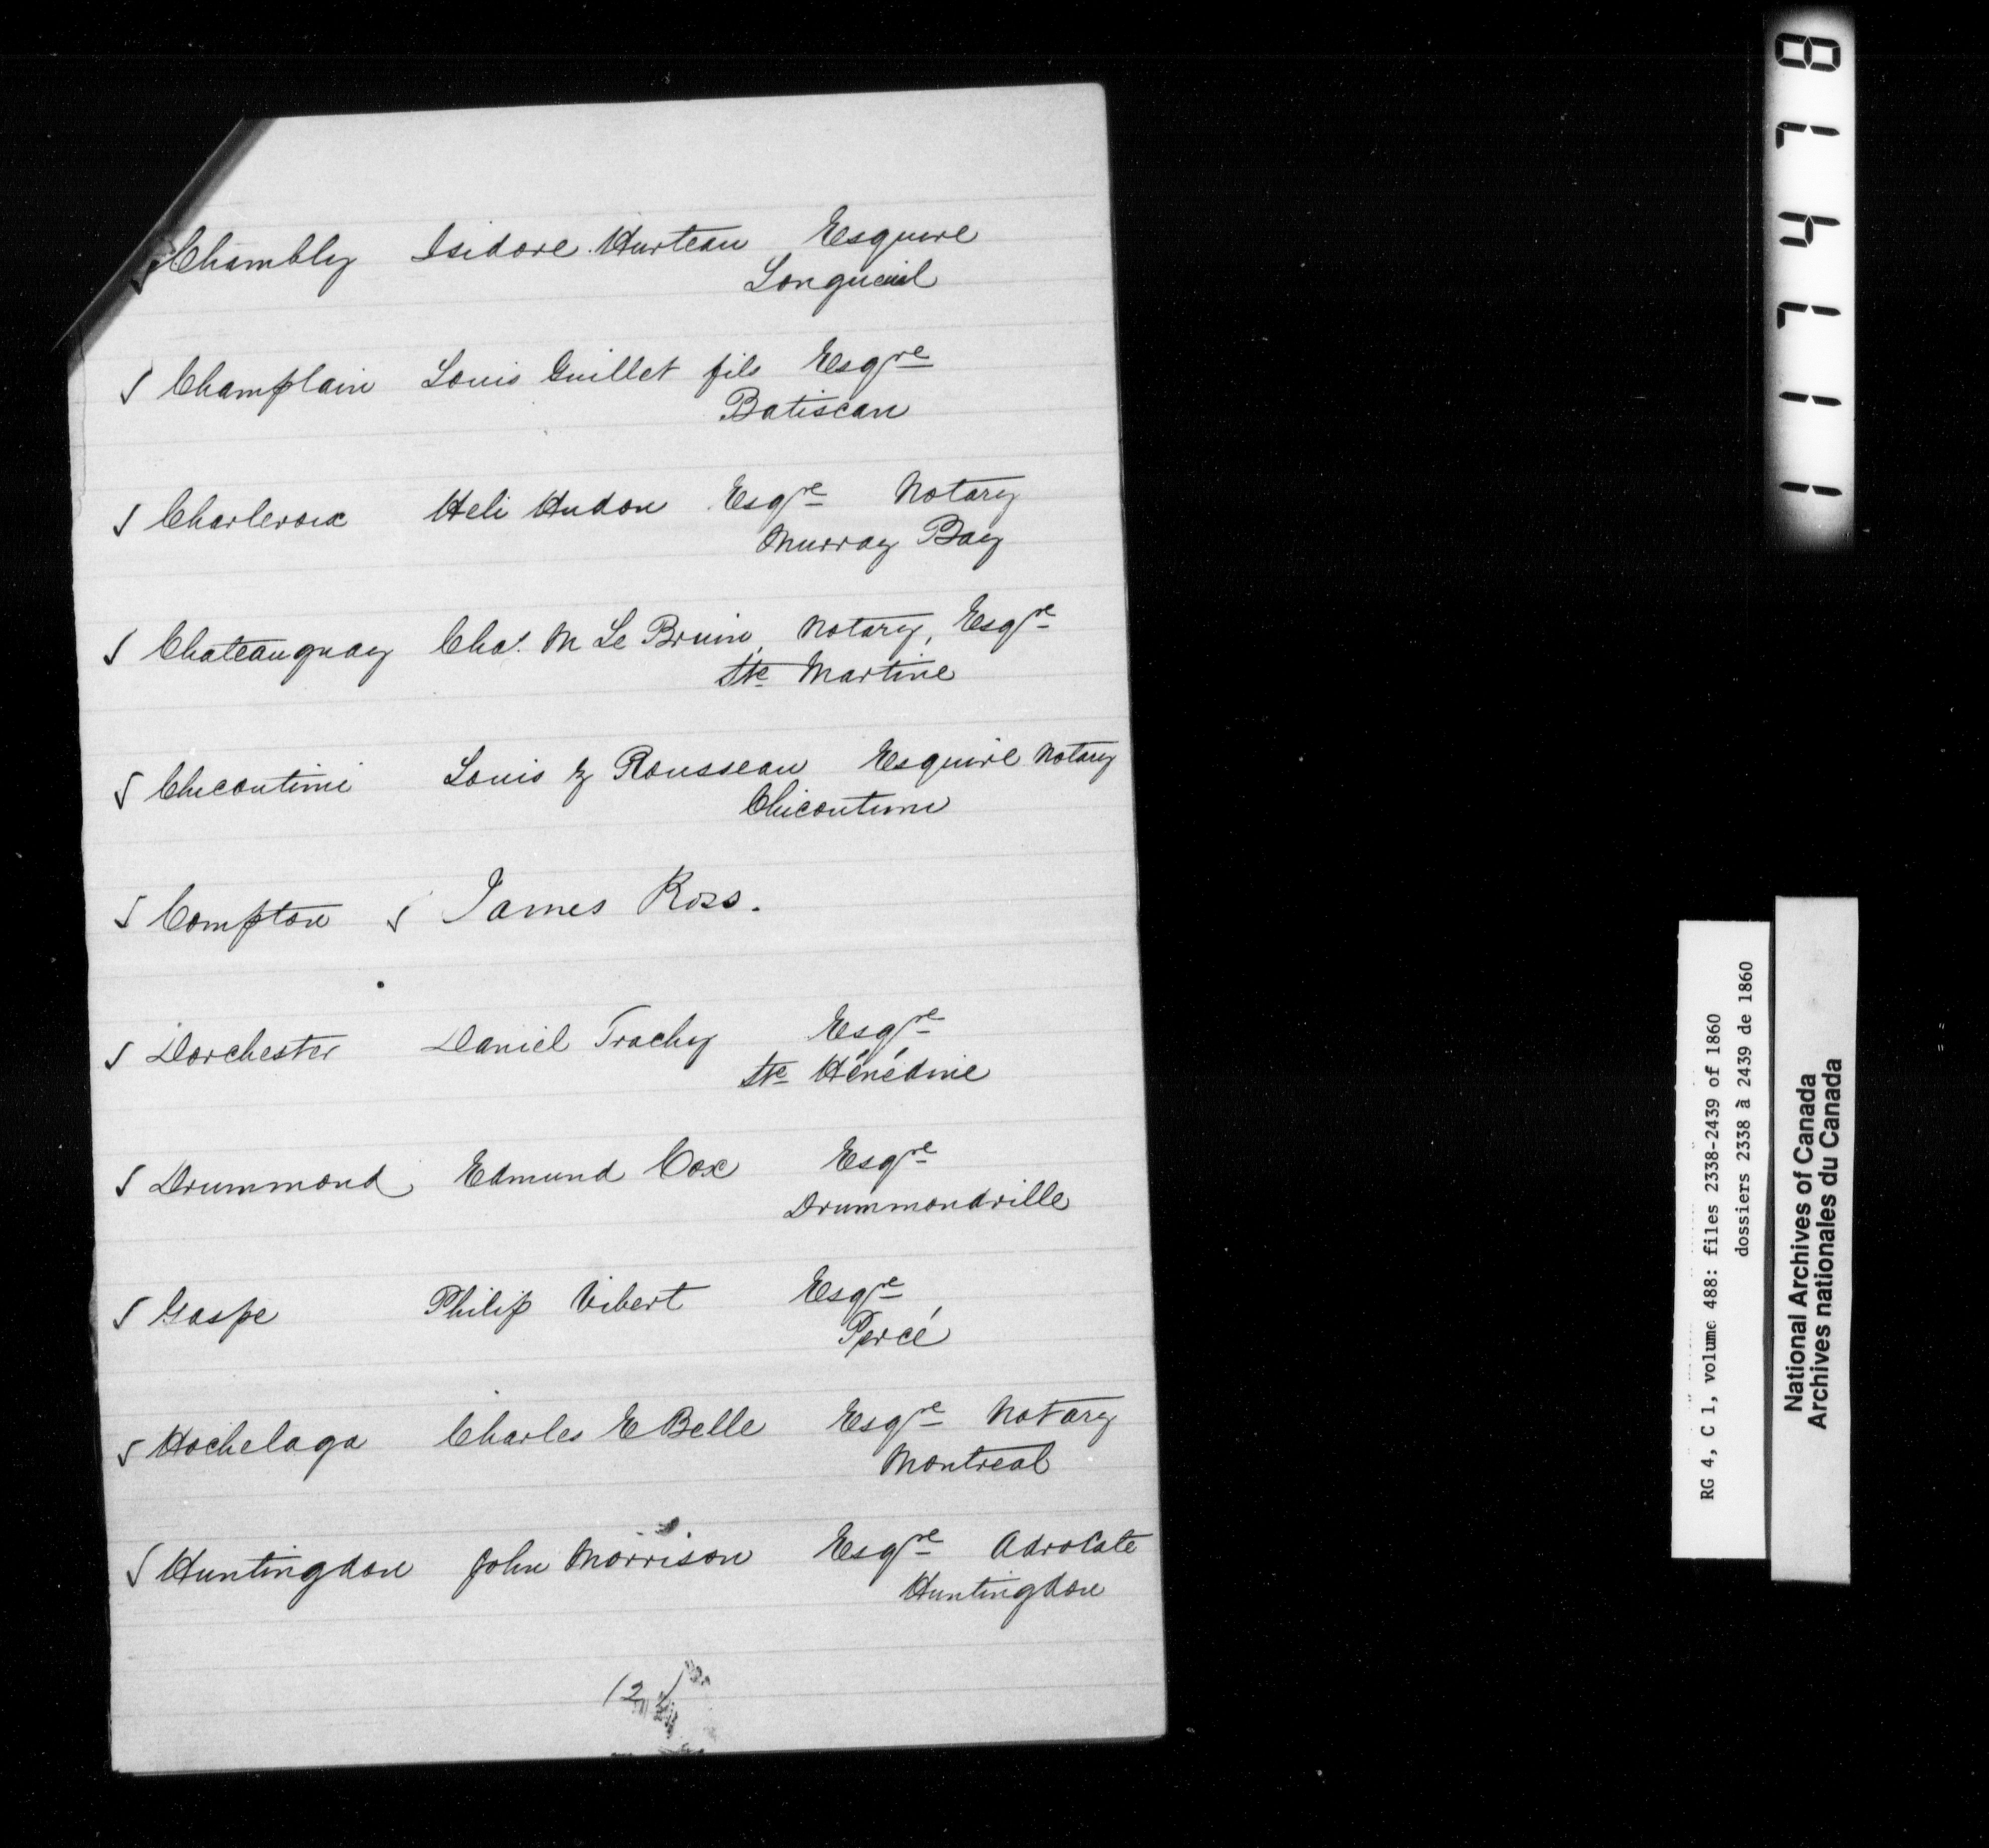 Chambly Isidore Hurteau Esquire
Longueuil
Champlain Louis Guillet fils Esqre
Batiscan
Charlevoix Heli Hudon Esqre Notary
Murray Bay
Chateauguay Chas. M Le Bruin, Notary, Esqre
Ste Martine
Chicoutimi Louis Z Rousseau Esquire Notary
Chicoutimi
Compton James Ross.
Dorchester Daniel Trachy Esqre
Ste Hénédine
Drummond Edmund Cox Esqre
Drummondville
Gaspe Philip Vibert Esqre
Percé
Hochelaga Charles E Belle Esqre Notary
Montreal
Huntingdon John Morrison Esqre Advocate
Huntingdon
12
117478
RG 4, C 1, volume 488: files 2338-2439 of 1860
dossiers 2338 à 2439 de 1860
National Archives of Canada
Archives nationales du Canada